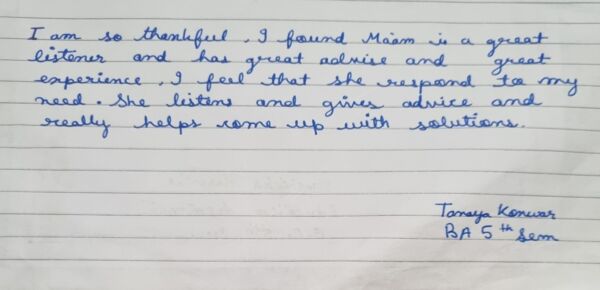 I am so thankful, I found Maam is a great
listener and has great advise and great
experience, I feel that she respond to my
need. She listens and gives advice and
really helps come up with solutions.
Tanaya Konwar
BA 5th Sem